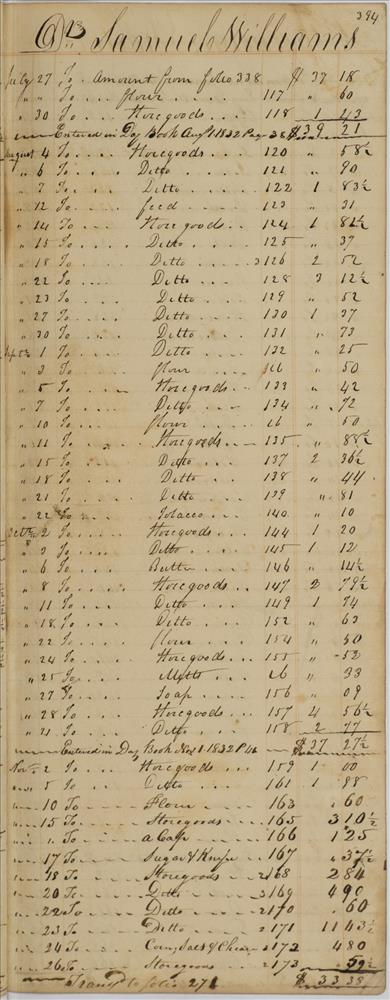 394
Drs Samuel Williams
July 27 To . Amount from folio 338 $ 37 18
" " To . . . flour . . . 117 " 60
" 30 To . . . Storegoods . . . 118 1 43
Entered in Day Book Augt 1832 Pag 38 $39 21
August 4 To . . . Storegoods . . 120 " 58½
" 6 To . . . Ditto . . . 121 " 90
" 7 To . . . Ditto . . . 122 1 83½
" 12 To . . . feed . . . 123 " 31
" 14 To . . . Storegoods . . 124 1 81½
" 15 To . . . Ditto . . . 125 " 37
" 18 To . . . Ditto . . . 126 2 52
" 22 To . . . Ditto . . . 128 3 12½
" 23 To . . . Ditto . . . 129 " 52
" 27 To . . . Ditto . . . 130 1 37
" 30 To . . . Ditto . . . 131 " 73
Septr 1 To . . . Ditto . . . 132 " 25
" 3 To . . . flour . . . " 50
" 5 To . . . Storegoods . . 133 " 42
" 7 To . . . Ditto . . . 134 " 72
" 10 To . . . flour . . . " 50
" 11 To . . . Storegoods . . 135 " 88½
" 15 To . . . Ditto . . . 137 2 36½
" 18 To . . . Ditto . . . 138 " 44
" 21 To . . . Ditto . . . 139 " 81
" 22 To . . . Tobacco . . . 140 " 10
2 To . . . Storegoods . . 144 1 20
" 3 To . . . Ditto . . . 145 1 12
" 6 To . . . Butter . . . 146 " 14½
" 8 To . . . Storegoods . . 147 2 79½
" 11 To . . . Ditto . . . 149 1 74
" 18 To . . . Ditto . . . 152 " 63
" 22 To . . . flour . . . 154 " 50
" 24 To . . . Storegoods . . 155 " 52
" 25 To . . . " 33
" 27 To . . . Soap . . . 156 " 09
" 28 To . . . Storegoods . . 157 4 56½
" 31 To . . . Ditto . . . 158 2 77
Entered in Day Book Nov 1 1832 P $37 27½
Novr 2 To . . . Storegoods . . 159 1 00
" 5 To . . . Ditto . . . 161 1 88
" 10 To Flour 163 . 60
" 15 To Storegoods 165 3 10½
" " To a Cap 166 1 25
" 17 To Sugar & Knife 167 . 37½
" 18 To Storegoods 168 2 84
" 20 To Ditto 169 4 90
" 22 To Ditto 170 . 60
" 23 To Ditto 171 11 43½
" 24 To Corn, Salt & 172 4 80
" 26 To Storegoods 173 . 59½
Transfd to folio 271 $ 33.38